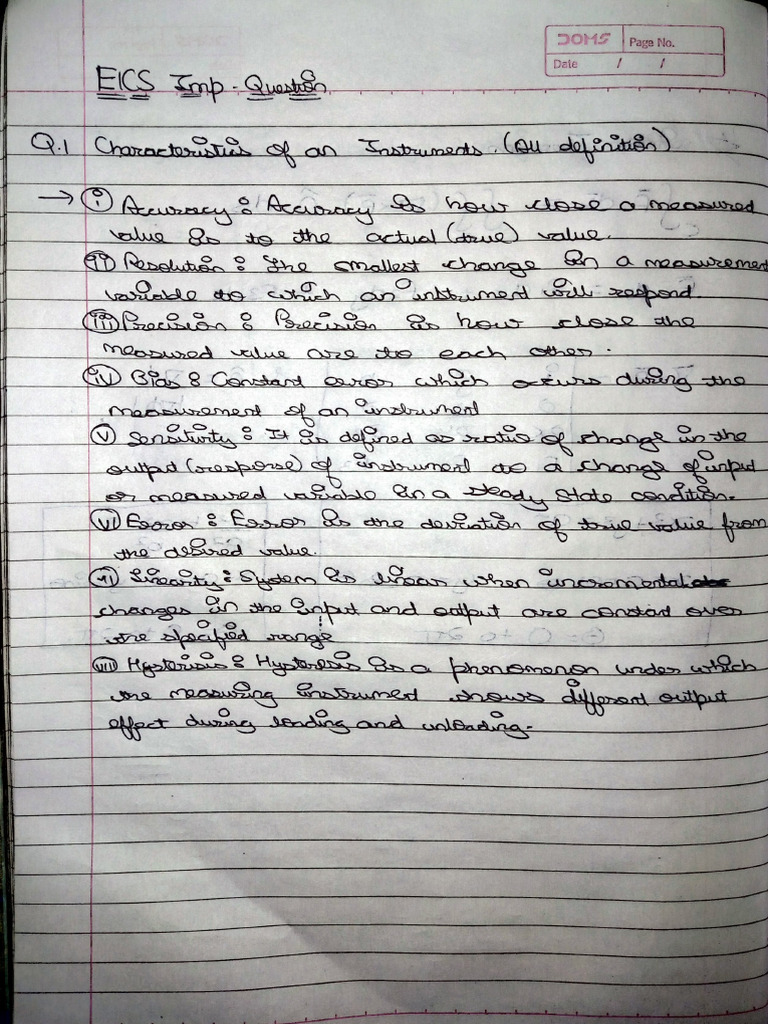 DOMS Page No.
Date / /
EICS Imp. Question
Q.1 Characteristics of an Instruments. (All definition)
→ (i) Accuracy : Accuracy is how close a measured
value is to the actual (true) value.
(ii) Resolution : The smallest change in a measurement
variable to which an instrument will respond.
(iii) Precision : Precision is how close the
measured value are to each other.
(iv) Bias : Constant error which occurs during the
measurement of an instrument
(v) Sensitivity : It is defined as ratio of change in the
output (response) of instrument to a change of input
or measured variable in a steady state condition.
(vi) Error : Error is the deviation of true value from
the desired value.
(vii) Linearity : System is linear when incremental
changes in the input and output are constant over
the specified range
(viii) Hysterisis : Hysteresis is a phenomenon under which
the measuring instrument shows different output
effect during loading and unloading.